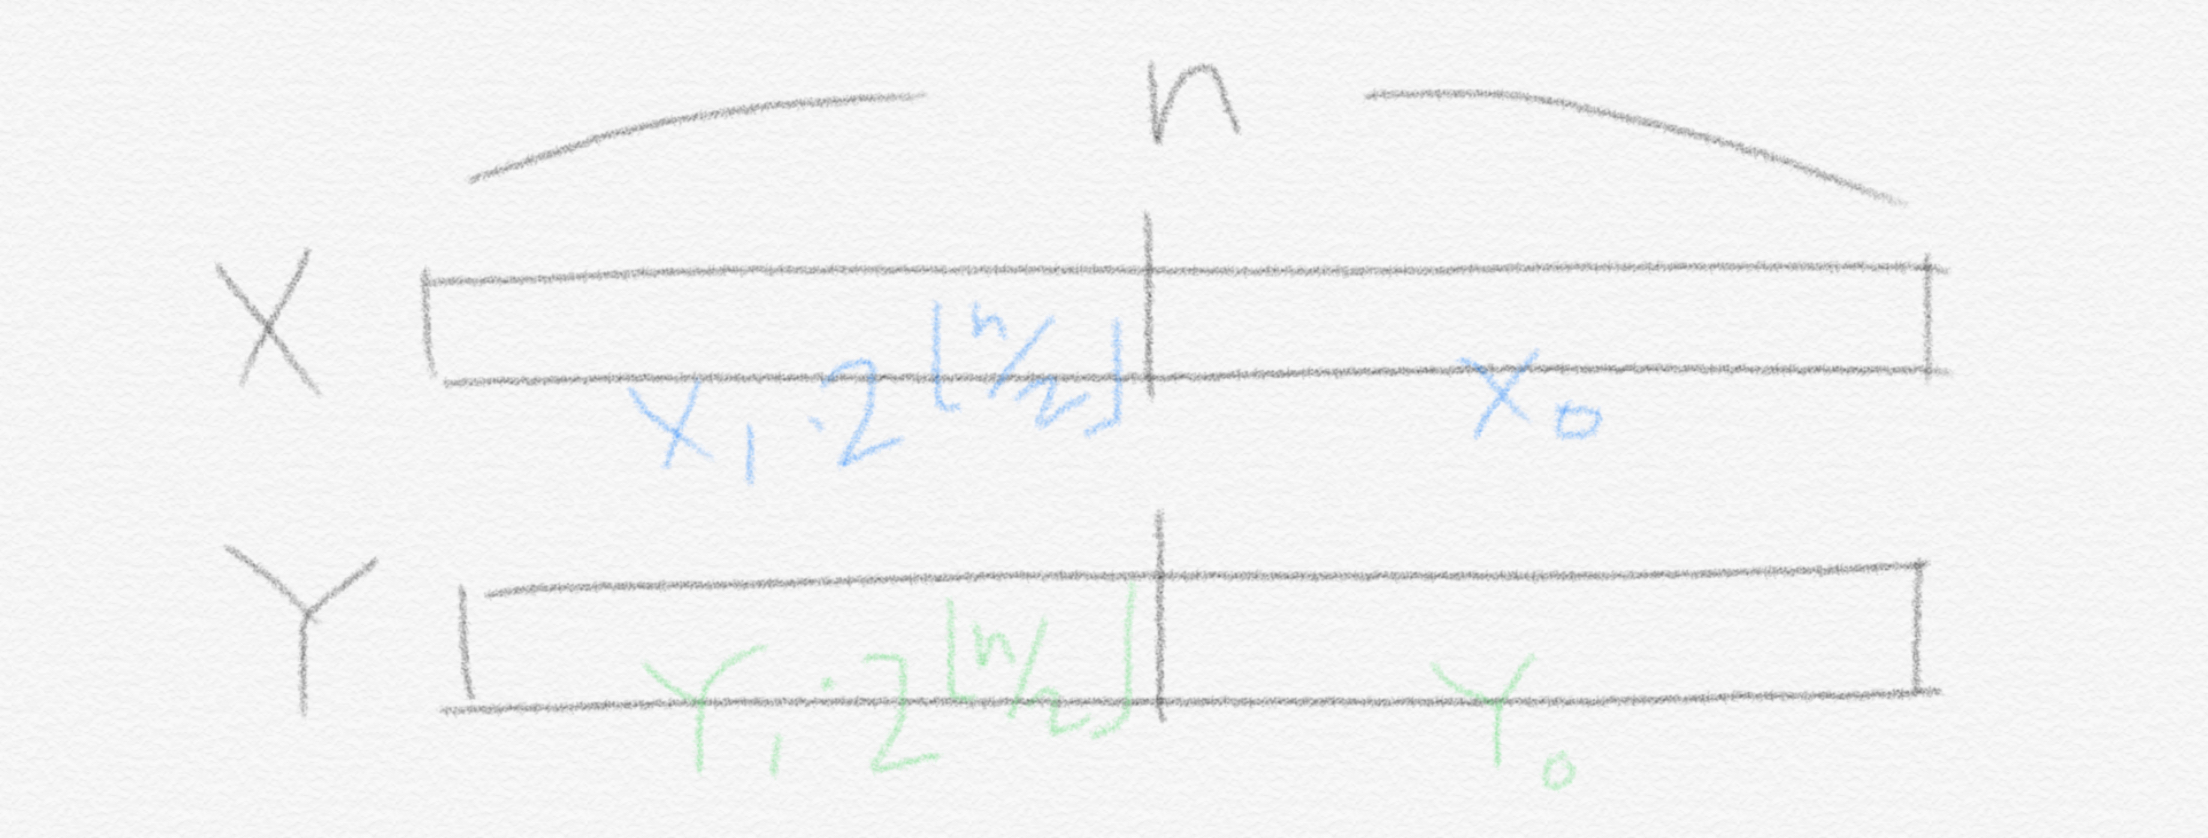 n
X
X₁·2^⌊n/2⌋ X₀
Y
Y₁·2^⌊n/2⌋ Y₀